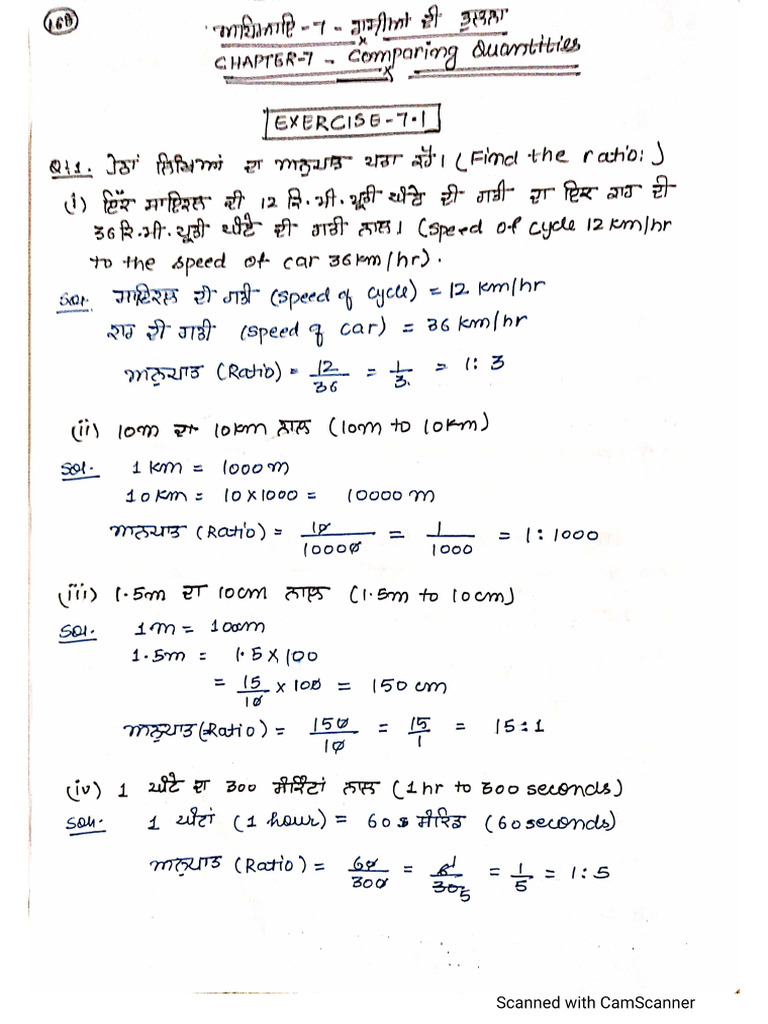 168
ਅਧਿਆਇ-7 - ਰਾਸ਼ੀਆਂ ਦੀ ਤੁਲਨਾ
CHAPTER-7 - Comparing Quantities
EXERCISE-7.1
Q:1. ਹੇਠਾਂ ਲਿਖਿਆਂ ਦਾ ਅਨੁਪਾਤ ਪਤਾ ਕਰੋ। (Find the ratio:)
(i) ਇੱਕ ਸਾਇਕਲ ਦੀ 12 ਕਿ.ਮੀ. ਪ੍ਰਤੀ ਘੰਟੇ ਦੀ ਗਤੀ ਦਾ ਇਕ ਕਾਰ ਦੀ
36 ਕਿ.ਮੀ. ਪ੍ਰਤੀ ਘੰਟੇ ਦੀ ਗਤੀ ਨਾਲ। (Speed of cycle 12 km/hr
to the speed of car 36km/hr).
Sol. ਸਾਇਕਲ ਦੀ ਗਤੀ (Speed of cycle) = 12 km/hr
ਕਾਰ ਦੀ ਗਤੀ (speed of car) = 36 km/hr
ਅਨੁਪਾਤ (Ratio) = 12/36 = 1/3 = 1:3
(ii) 10m ਦਾ 10km ਨਾਲ (10m to 10km)
Sol. 1 km = 1000 m
10 km = 10 × 1000 = 10000 m
ਅਨੁਪਾਤ (Ratio) = 10/10000 = 1/1000 = 1:1000
(iii) 1.5m ਦਾ 10cm ਨਾਲ (1.5m to 10cm)
Sol. 1 m = 100cm
1.5m = 1.5 × 100
= 15/10 × 100 = 150 cm
ਅਨੁਪਾਤ (Ratio) = 150/10 = 15/1 = 15:1
(iv) 1 ਘੰਟੇ ਦਾ 300 ਸੈਕਿੰਟਾਂ ਨਾਲ (1 hr to 300 seconds)
Soln. 1 ਘੰਟਾਂ (1 hour) = 60 ਸੈਕਿੰਡ (60 seconds)
ਅਨੁਪਾਤ (Ratio) = 60/300 = 6/30 = 1/5 = 1:5
Scanned with CamScanner